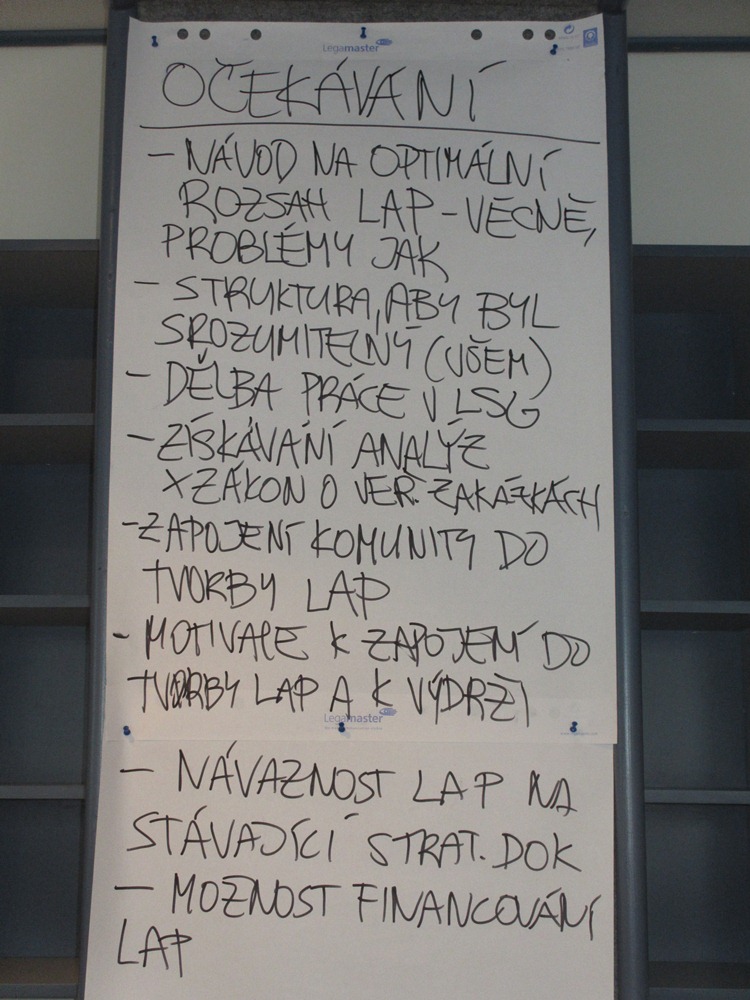 Legamaster
OČEKÁVÁNÍ
- NÁVOD NA OPTIMÁLNÍ
ROZSAH LAP - VĚCNĚ,
PROBLÉMY JAK
- STRUKTURA, ABY BYL
SROZUMITELNÝ (VŠEM)
- DĚLBA PRÁCE V LSG
- ZÍSKÁVÁNÍ ANALÝZ
X ZÁKON O VEŘ. ZAKÁZKÁCH
- ZAPOJENÍ KOMUNITY DO
TVORBY LAP
- MOTIVACE K ZAPOJENÍ DO
TVORBY LAP A K VÝDRŽI
Legamaster
- NÁVAZNOST LAP NA
STÁVAJÍCÍ STRAT. DOK
- MOŽNOST FINANCOVÁNÍ
LAP